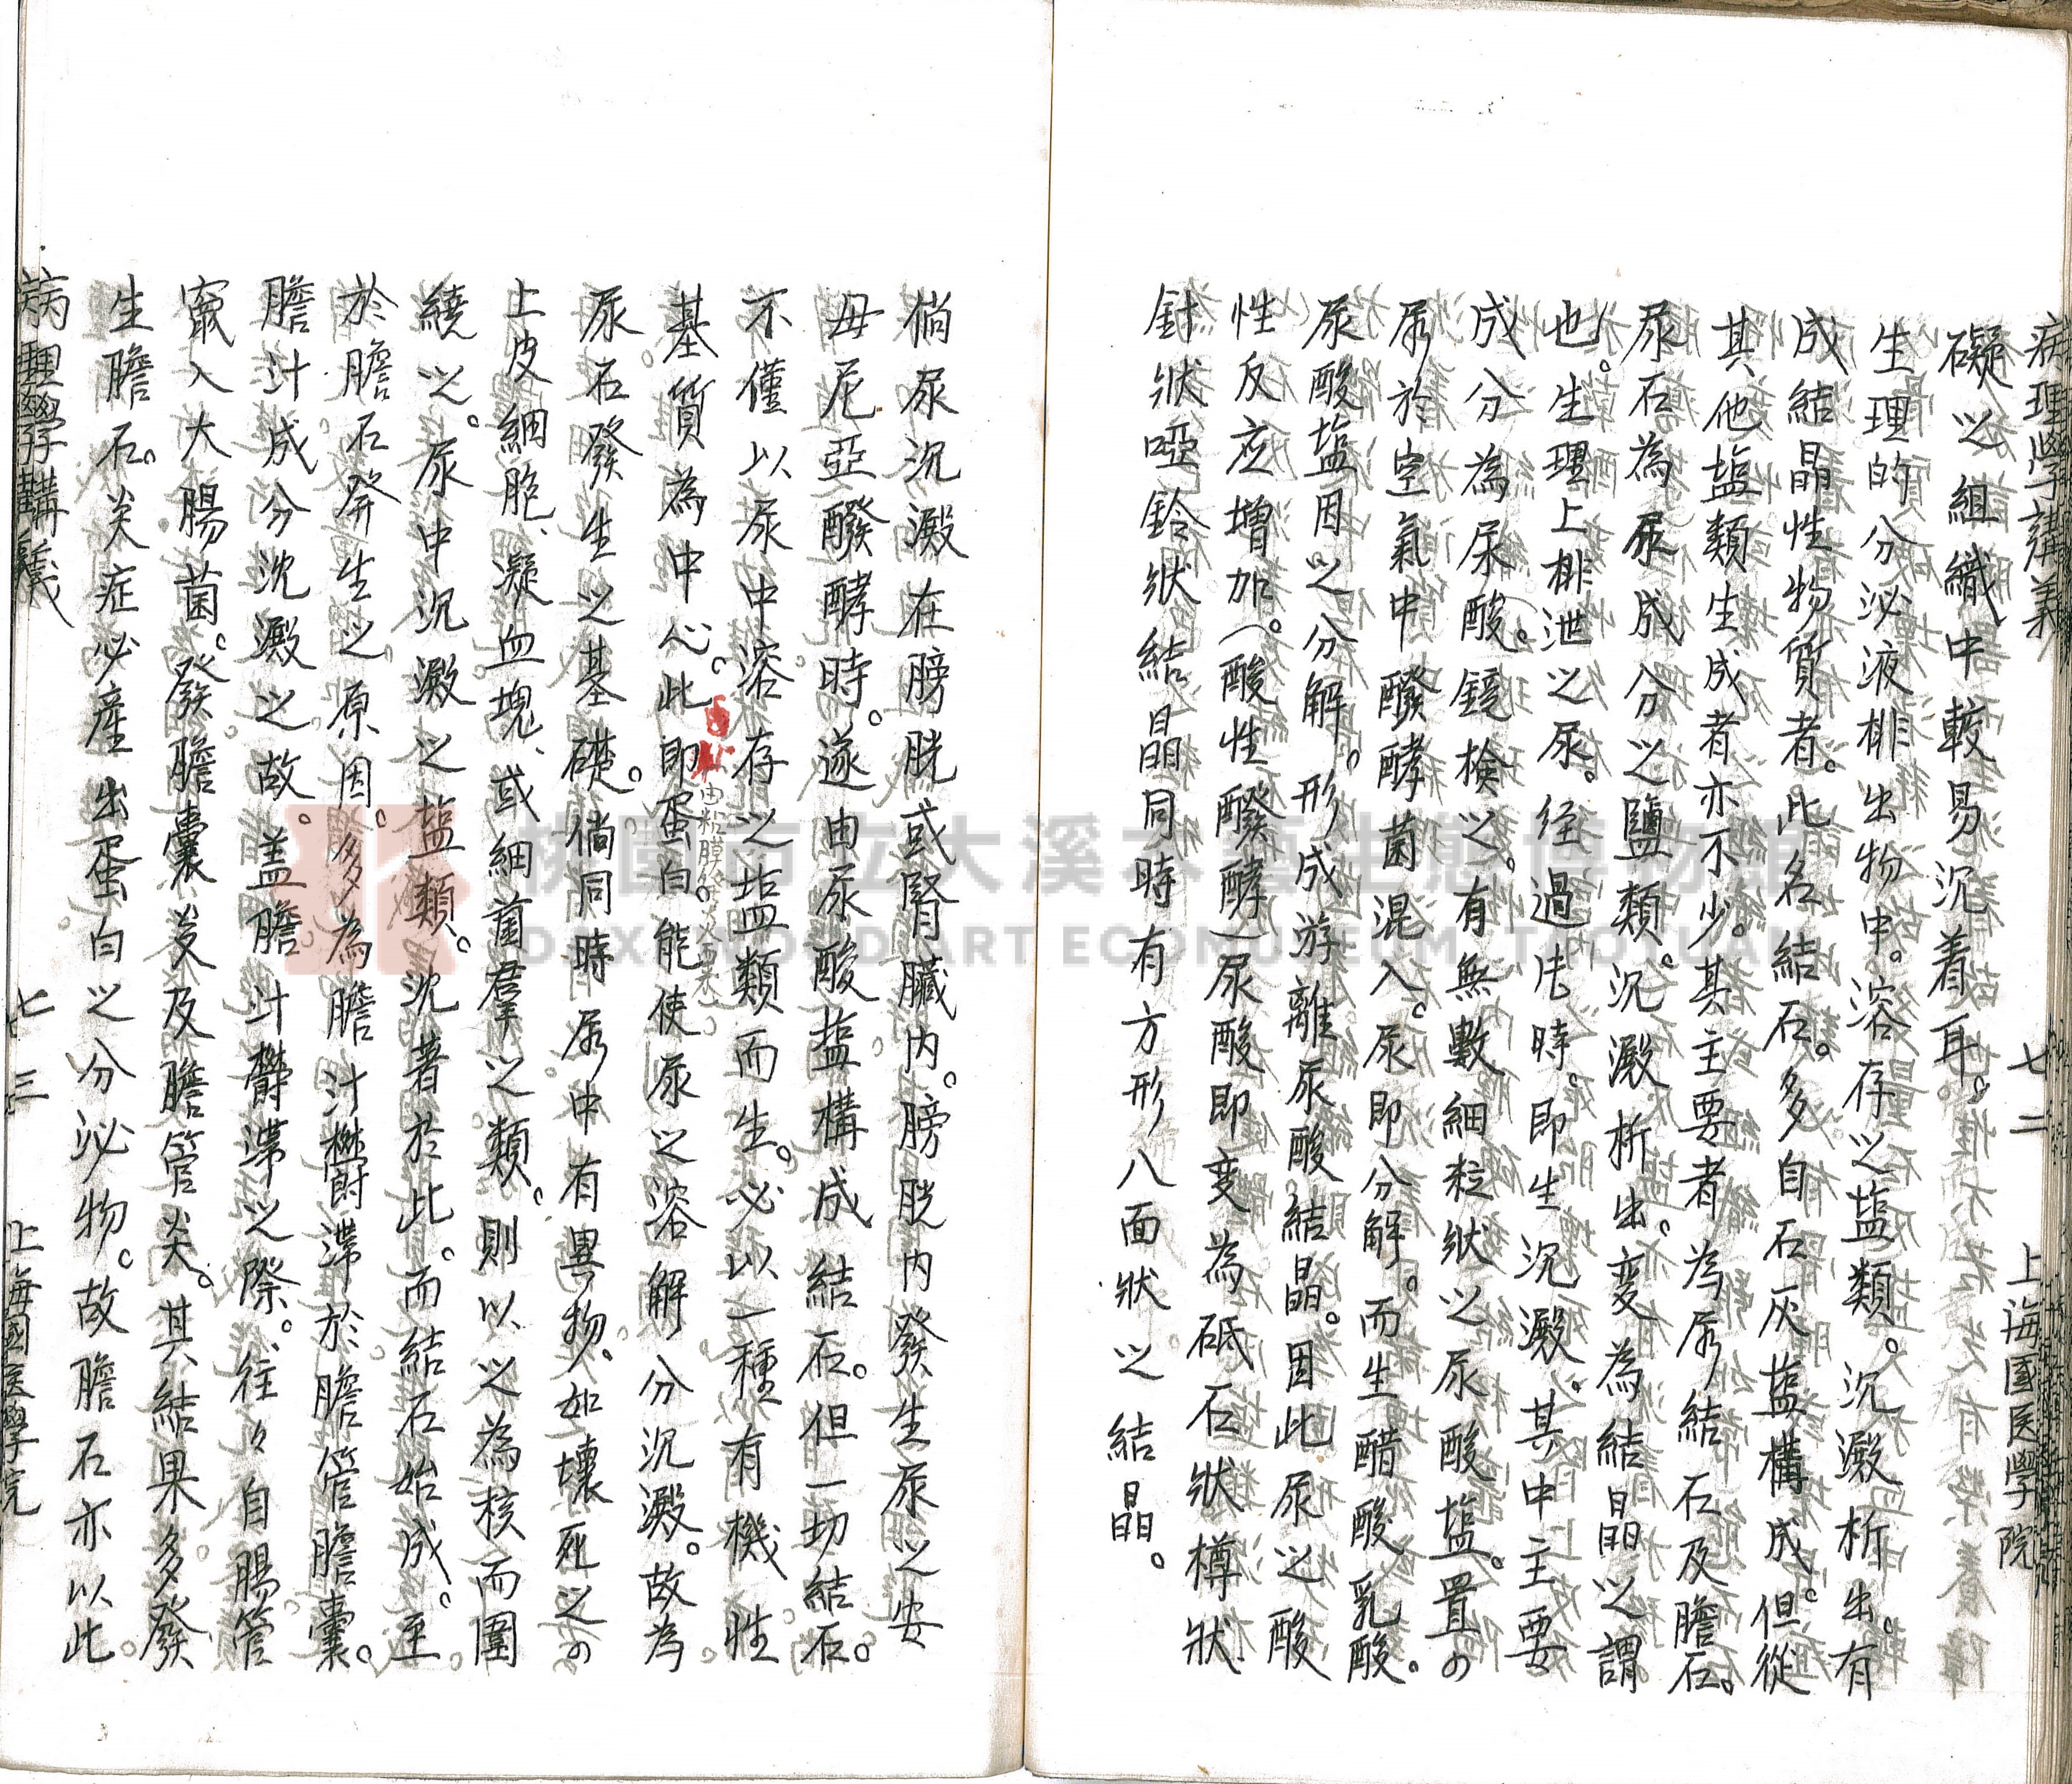 病理學講義 七二 上海國医学院
礙以組織中較易沉着耳。
生理的分泌液排出物中。溶存之塩類。沉澱析出。有
成結晶性物質者。此名結石。多自石灰塩構成。但從
其他塩類生成者亦不少。其主要者為尿結石及膽石。
尿石為尿成分之鹽類。沉澱析出。变為結晶之謂
也。生理上排泄之尿。经過片時。即生沉澱。其中主要
成分為尿酸。鏡檢之。有無數細粒狀之尿酸塩。置の
尿於空氣中醱酵菌混入。尿即分解。而生醋酸乳酸。
尿酸塩因之分解。形成游離尿酸結晶。因此尿之酸
性反应增加。(酸性醱酵)尿酸即变為砥石狀樽狀
針狀啞鈴狀結晶同時有方形八面狀之結晶。
倘尿沉澱在膀胱或腎臟內。膀胱內發生尿之安
母尼亞醱酵時。遂由尿酸塩構成結石。但一切結石。
不僅以尿中溶存之塩類而生。必以一種有機性
基質為中心。此即蛋白。能使尿之溶解分沉澱。故為
由粘膜炎來
尿石發生之基礎。倘同時尿中有異物。如壞死之の
上皮細胞、凝血塊、或細菌羣之類。則以之為核而圍
繞之。尿中沉澱之塩類。沈著於此。而結石始成。至
於膽石発生之原因。多為膽汁欝滯於膽管膽囊。
膽汁成分沈澱之故。盖膽汁欝滯之際。往々自腸管
竄入大腸菌。發膽囊炎及膽管炎。其結果多發
生膽石。炎症必產出蛋白之分泌物。故膽石亦以此
病理學講義 七三 上海國医學院
桃園市立大溪木藝生態博物館
DAXI WOOD ART ECOMUSEUM, TAOYUAN